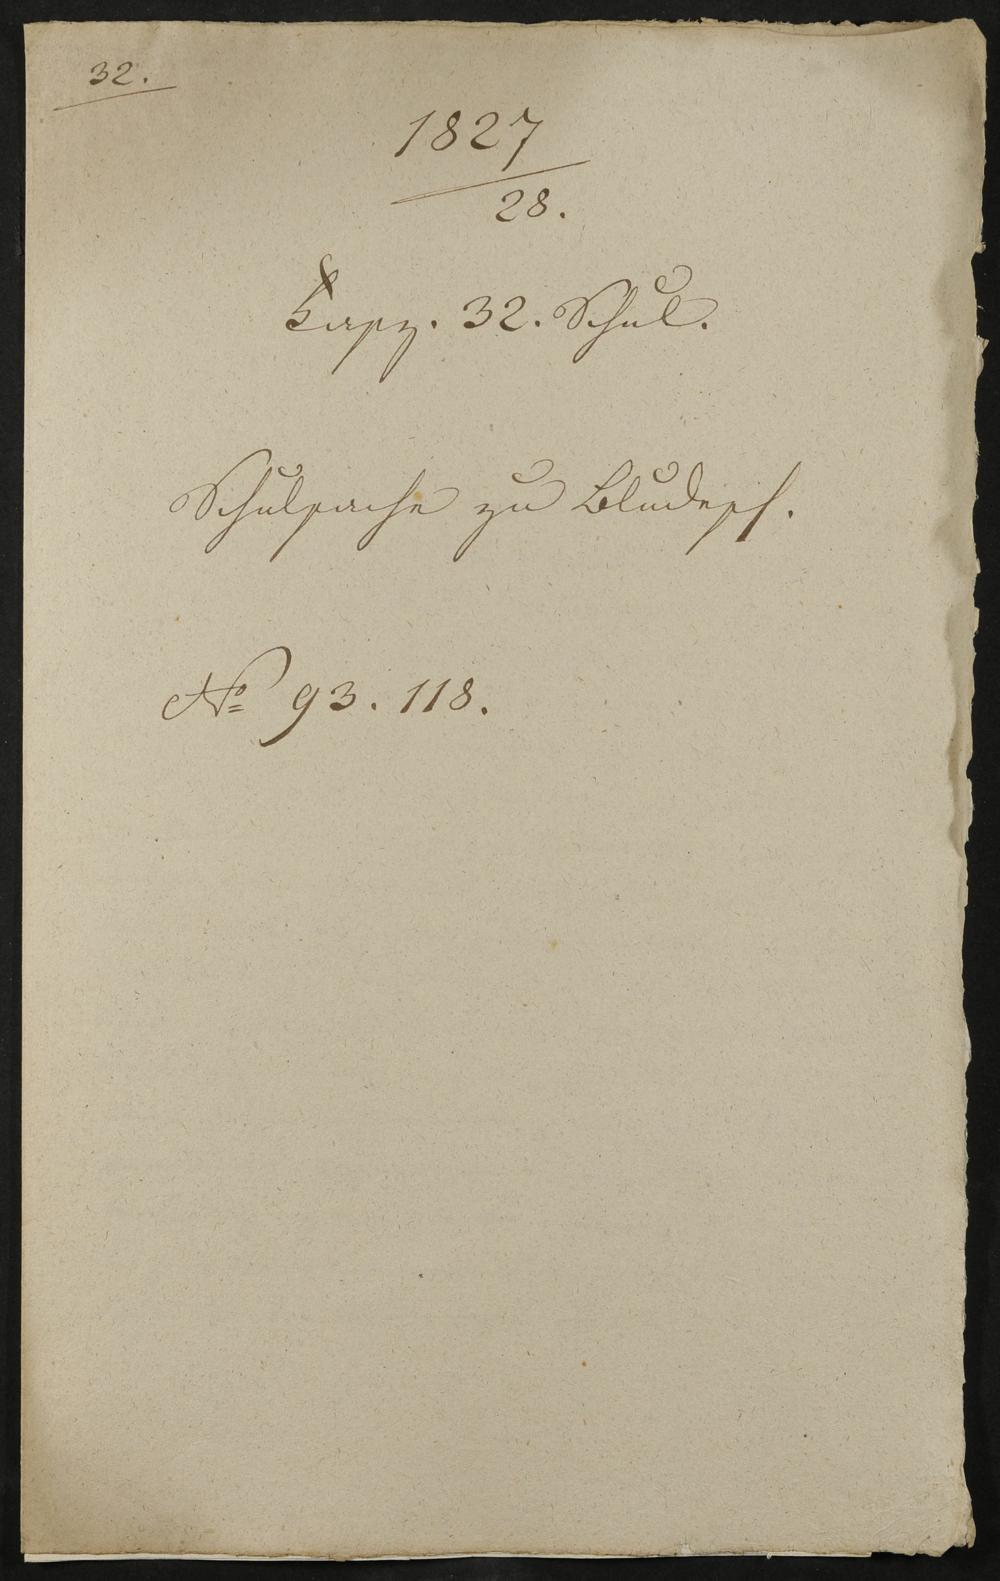 32.
1827
28.
Fasz. 32. Schul.
Schulsache zu Bludesch.
No 93. 118.